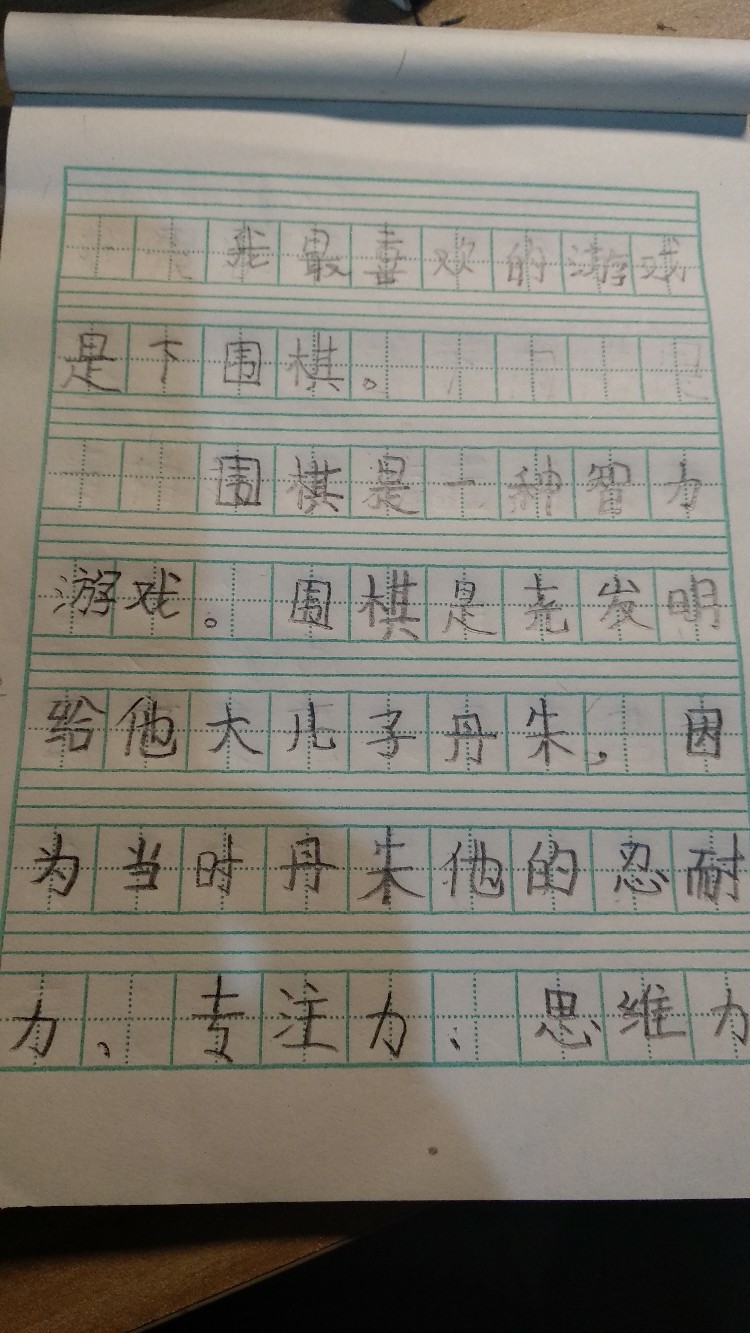 我最喜欢的游戏
是下围棋。
围棋是一种智力
游戏。围棋是尧发明
给他大儿子丹朱，因
为当时丹朱他的忍耐
力、专注力、思维力